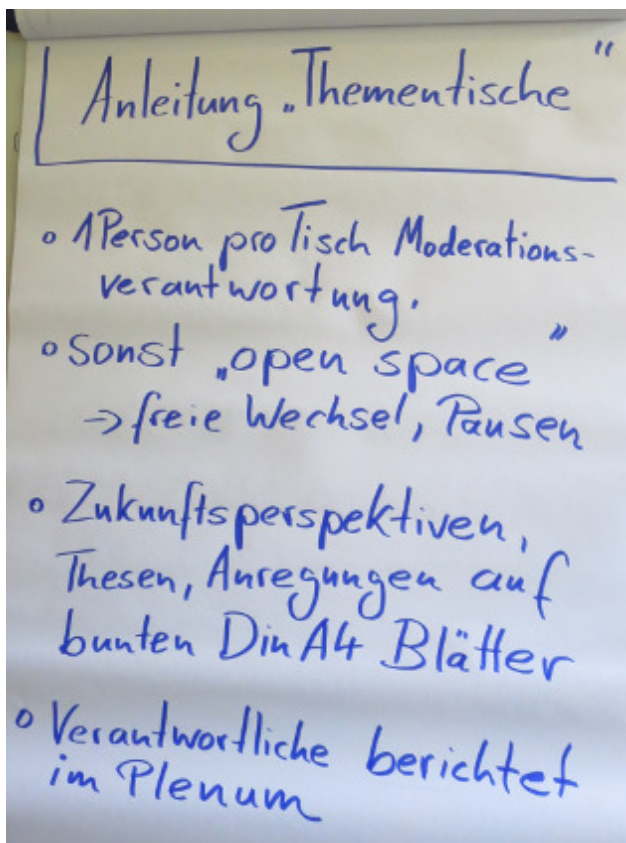 Anleitung „Thementische“
o 1 Person pro Tisch Moderations-
verantwortung.
o sonst „open space“
→ freie Wechsel, Pausen
o Zukunftsperspektiven,
Thesen, Anregungen auf
bunten Din A4 Blätter
o Verantwortliche berichtet
im Plenum